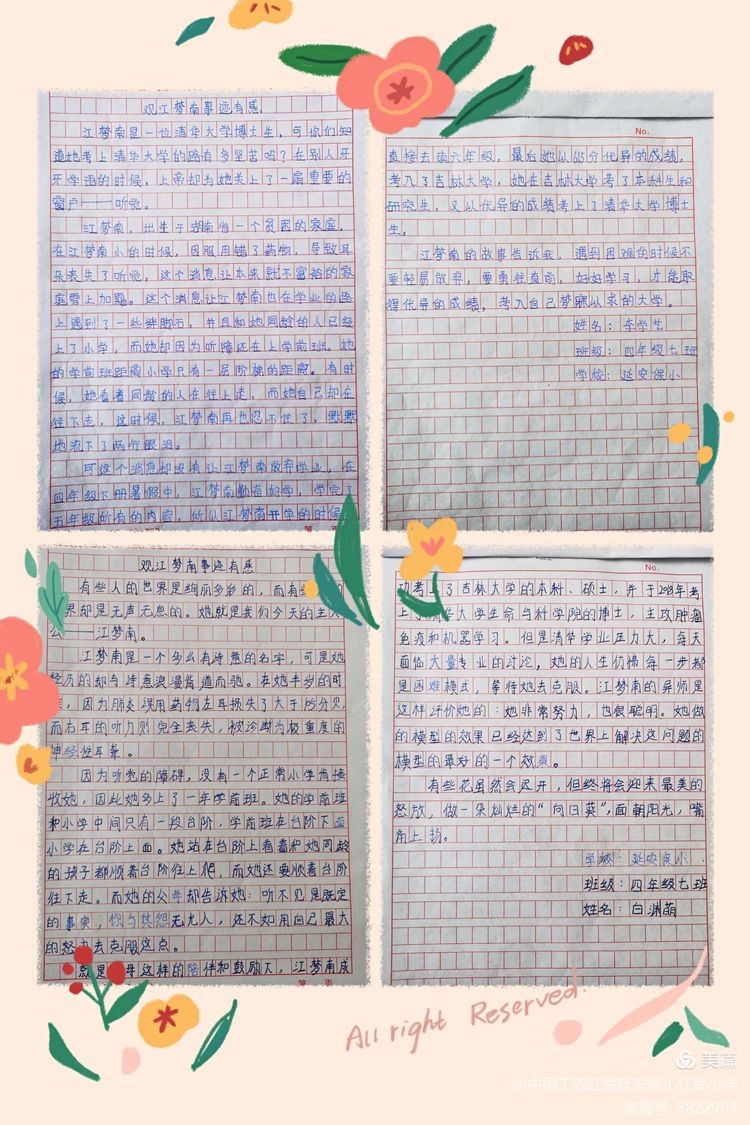 观江梦南事迹有感
江梦南是一位清华大学博士生，可你们知
道她考上清华大学的路有多坚苦吗？在别人牙
牙学语的时候，上帝却为她关上了一扇重要的
窗户——听觉。
江梦南，出生于湖南省一个贫困的家庭，
在江梦南小的时候，因服用错了药物，导致耳
朵丧失了听觉，这个消息让本来就不富裕的家
庭雪上加霜。这个消息让江梦南也在学业的路
上遇到了一些绊脚石，并且和她同龄的人已经
上了小学，而她却因为听障还在上学前班。她
的学前班距离小学只有一层阶梯的距离。有时
候，她看着同龄的人在往上走，而她自己却在
往下走，这时候，江梦南再也忍不住了，默默
地流下了两行眼泪。
可这个消息却没有让江梦南放弃学业，在
四年级下册暑假中，江梦南勤奋好学，学完了
五年级所有的内容，所以江梦南开学的时候
No.
直接去读六年级，最后她以615分优异的成绩，
考入了吉林大学，她在吉林大学考了本科生和
研究生，又以优异的成绩考上了清华大学博士
生。
江梦南的故事告诉我，遇到困难的时候不
要轻易放弃，要勇往直前，好好学习，才能取
得优异的成绩，考入自己梦寐以求的大学。
姓名：李学芝
班级：四年级七班
学校：延安保小
观江梦南事迹有感
有些人的世界是绚丽多彩的，而有些
界却是无声无息的。她就是我们今天的主人
公——江梦南。
江梦南是一个多么有诗意的名字，可是她
经历的却与诗意浪漫背道而驰。在她半岁的时
候，因为肺炎误用药物左耳损失了大于105分贝，
而右耳的听力则完全丧失，被诊断为极重度的
神经性耳聋。
因为听觉的障碍，没有一个正常小学肯接
收她，因此她多上了一年学前班。她的学前班
和小学中间只有一段台阶，学前班在台阶下面
小学在台阶上面。她站在台阶上看着和她同龄
的孩子都顺着台阶往上爬，而她还要顺着台阶
往下走。而她的父母却告诉她：听不见是既定
的事实，你与其怨天尤人，还不如用自己最大
的努力去克服这点。
就是 母这样的陪伴和鼓励下，江梦南成
No.
功考上了吉林大学的本科、硕士，并于2018年考
上了清华大学生命与科学院的博士，主攻肿瘤
免疫和机器学习。但是清华学业压力大，每天
面临大量专业的讨论，她的人生仿佛每一步都
是困难模式，等待她去克服。江梦南的导师是
这样评价她的：她非常努力，也很聪明。她做
的模型的效果已经达到了世界上解决这问题的
模型的最好的一个效果。
有些花虽然会迟开，但终将会迎来最美的
怒放，做一朵灿烂的“向日葵”，面朝阳光，嘴
角上扬。
学校：延安保小
班级：四年级七班
姓名：白渊萌
All right Reserved.
美篇
@中国工农红军延安保小红军小学
美篇号: 5822904